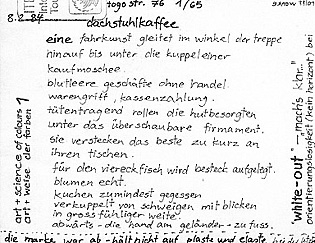 togo str. 76 1/65
8.2.84
dachstuhlkaffee
eine fahrkunst gleitet im winkel der treppe
hinauf bis unter die kuppel einer
kaufmoschee.
blutleere geschäfte ohne handel
warengriff, kassenzahlung.
tütentragend rollen die hutbesorgten
unter das überschaubare firmament.
sie verstecken das beste zu kurz an
ihren tischen.
für den viereckfisch wird besteck aufgelegt.
blumen echt.
kuchen zumindest gegessen
verkuppelt von schweigen mit blicken
in grossfühliger weite.
abwärts - die hand am geländer - zu fuss.
art + science of colours
art + weise der farben
"white-out" - "machs klar..."
orientierungslosigkeit (kein horizont) bei
die marke war ab - hält nicht auf plaste und elaste